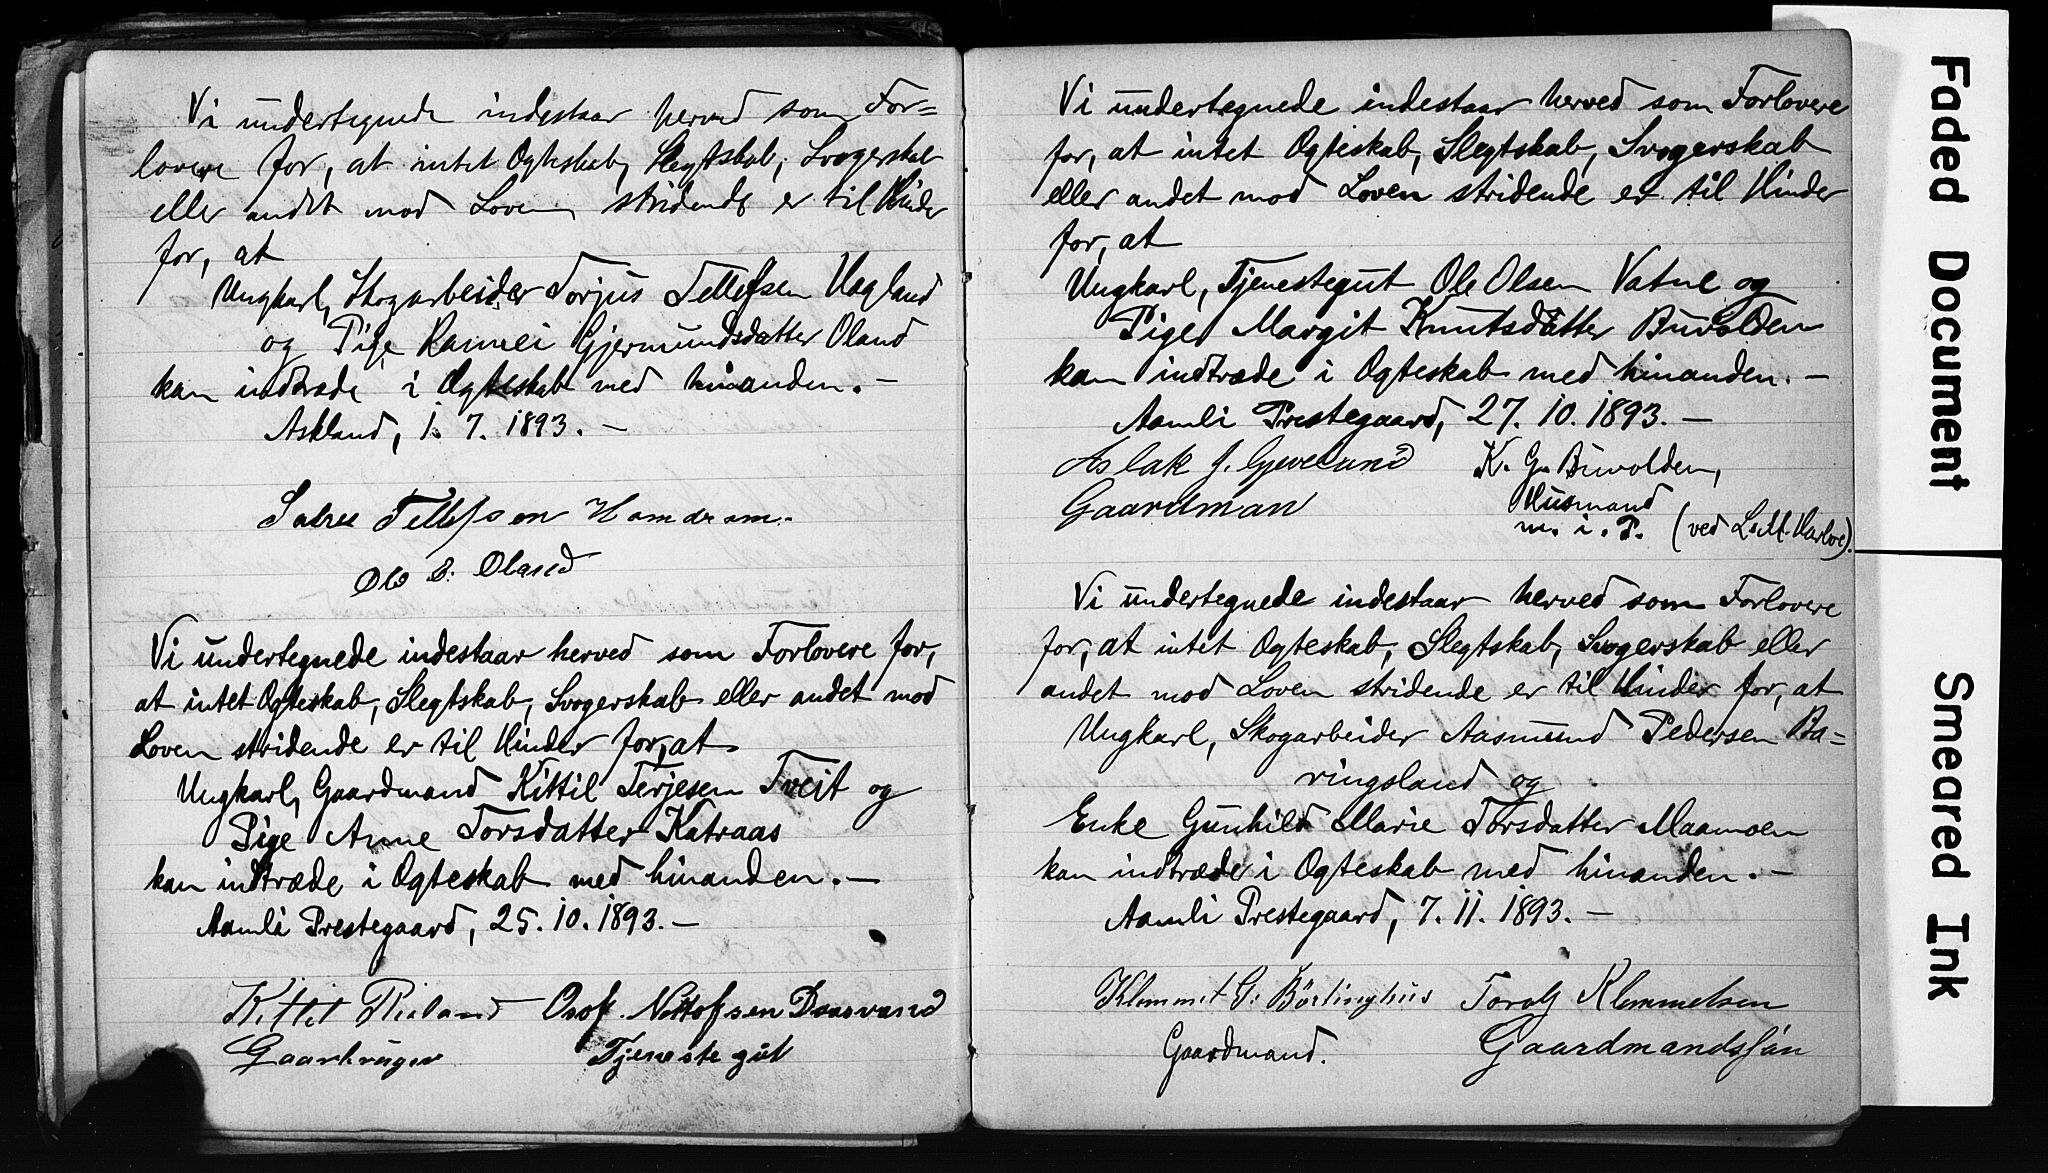 Vi undertegnede indestaar herved som For=
lovere for, at intet Ogteskab, Slegtskab, Svogerskab
eller andet mod Loven stridende er til Hinder
for, at
Ungkarl, Skogarbeider Torjus Tellefsen Hagland
og Pige Gjermundsdatter Oland
kan indtræde i Ogteskab med hinanden. –
Askland, 1. 7. 1893. –
Tellefsen Homdrom.
Ole G. Oland
Vi undertegnede indestaar herved som Forlovere for,
at intet Ogteskab, Slegtskab, Svogerskab eller andet mod
Loven stridende er til Hinder for, at
Ungkarl, Gaardmand Kittil Terjesen Tveit og
Pige Anne Torsdatter Katraas
kan indtræde i Ogteskab med hinanden. –
Aamli Prestegaard, 25. 10. 1893. –
Kittil Osof Nottofsen Daasvand
Gaarbruger Tjenestegut
Vi undertegnede indestaar herved som Forlovere
for, at intet Ogteskab, Slegtskab, Svogerskab
eller andet mod Loven stridende er til Hinder
for, at
Ungkarl, Tjenestegut Ole Olsen Vatne og
Pige Margit Knutsdatter Buvolden
kan indtræde i Ogteskab med hinanden. –
Aamli Prestegaard, 27. 10. 1893. –
Aslak J. Gjevelund K. G. Buvolden,
Gaardman Husmand
m. i. P. (ved L. M. Harloe).
Vi undertegnede indestaar herved som Forlovere
for, at intet Ogteskab, Slegtskab, Svogerskab eller
andet mod Loven stridende er til Hinder for, at
Ungkarl, Skogarbeider Aasmund Pedersen Ba=
ringsland og
Enke Gunhild Marie Torsdatter Maamoen
kan indtræde i Ogteskab med hinanden. –
Aamli Prestegaard, 7. 11. 1893. –
Klemmet G. Börlinghus Toralf Klemmetsen
Gaardmand. Gaardmandssön
Faded Document
Smeared Ink